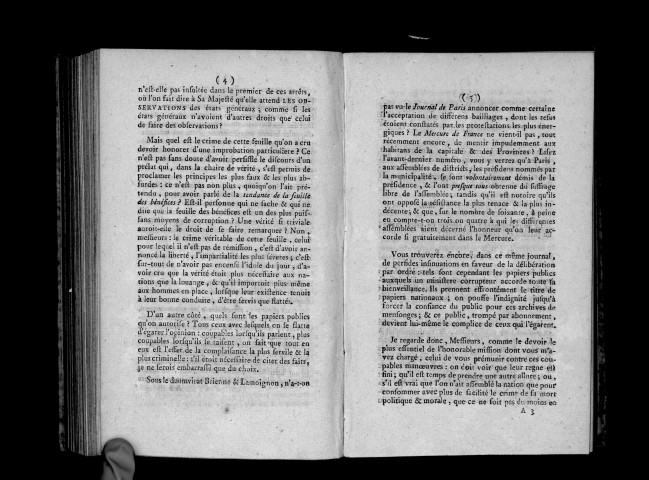 ( 4 )
n'est-elle pas insultée dans le premier de ces arrêts,
où l'on fait dire à Sa Majesté qu'elle attend LES OB-
SERVATIONS des états généraux ; comme si les
états généraux n'avoient d'autres droits que celui
de faire des observations ?
Mais quel est le crime de cette feuille qu'on a cru
devoir honorer d'une improbation particuliere ? Ce
n'est pas sans doute d'avoir persifflé le discours d'un
prélat qui, dans la chaire de vérité, s'est permis de
proclamer les principes les plus faux & les plus ab-
surdes : ce n'est pas non plus, quoiqu'on l'ait pré-
tendu, pour avoir parlé de la tendante de la feuille
des bénéfices ? Est-il personne qui ne sache & qui ne
dise que la feuille des bénéfices est un des plus puis-
sans moyens de corruption ? Une vérité si triviale
auroit-elle le droit de se faire remarquer ? Non,
messieurs : le crime véritable de cette feuille, celui
pour lequel il n'est pas de rémission, c'est d'avoir an-
noncé la liberté, l'impartialité les plus séveres ; c'est
sur-tout de n'avoir pas encensé l'idole du jour, d'a-
voir cru que la vérité étoit plus nécessaire aux na-
tions que la louange, & qu'il importoit plus même
aux hommes en place, lorsque leur existence tenoit
à leur bonne conduite, d'être servis que flattés.
D'un autre côté, quels sont les papiers publics
qu'on autorise ? Tous ceux avec lesquels on se flatte
d'égarer l'opinion : coupables lorsqu'ils parlent, plus
coupables lorsqu'ils se taisent, on sait que tout en
eux est l'effet de la complaisance la plus servile & la
plus criminelle : s'il étoit nécessaire de citer des faits,
je ne serois embarrassé que du choix.
Sous le duumvirat Brienne & Lamoignon, n'a-t-on
( 5 )
pas vu le Journal de Paris annoncer comme certaine
l'acceptation de différens bailliages, dont les refus
étoient constatés par les protestations les plus éner-
giques ? Le Mercure de France ne vient-il pas, tout
récemment encore, de mentir impudemment aux
habitans de la capitale & des Provinces ? Lisez
l'avant-dernier numéro, vous y verrez qu'à Paris,
aux assemblées de districts, les présidens nommés par
la municipalité, se sont volontairement démis de la
présidence, & l'ont presque tous obtenue du suffrage
libre de l'assemblée ; tandis qu'il est notoire qu'ils
ont opposé la résistance la plus tenace & la plus in-
décente ; & que, sur le nombre de soixante, à peine
en compte-t-on trois ou quatre à qui les différentes
assemblées aient décerné l'honneur qu'on leur ac-
corde si gratuitement dans le Mercure.
Vous trouverez encore, dans ce même journal,
de perfides insinuations en faveur de la délibération
par ordre : tels sont cependant les papiers publics
auxquels un ministere corrupteur accorde toute sa
bienveillance. Ils prennent effrontément le titre de
papiers nationaux ; on pousse l'indignité jusqu'à
forcer la confiance du public pour ces archives de
mensonges ; & ce public, trompé par abonnement,
devient lui-même le complice de ceux qui l'égarent.
Je regarde donc, Messieurs, comme le devoir le
plus essentiel de l'honorable mission dont vous m'a-
vez chargé, celui de vous prémunir contre ces cou-
pables manœuvres : on doit voir que leur regne est
fini ; qu'il est temps de prendre une autre allure ; ou,
s'il est vrai que l'on n'ait assemblé la nation que pour
consommer avec plus de facilité le crime de sa mort
politique & morale, que ce ne soit pas du moins en
A 3